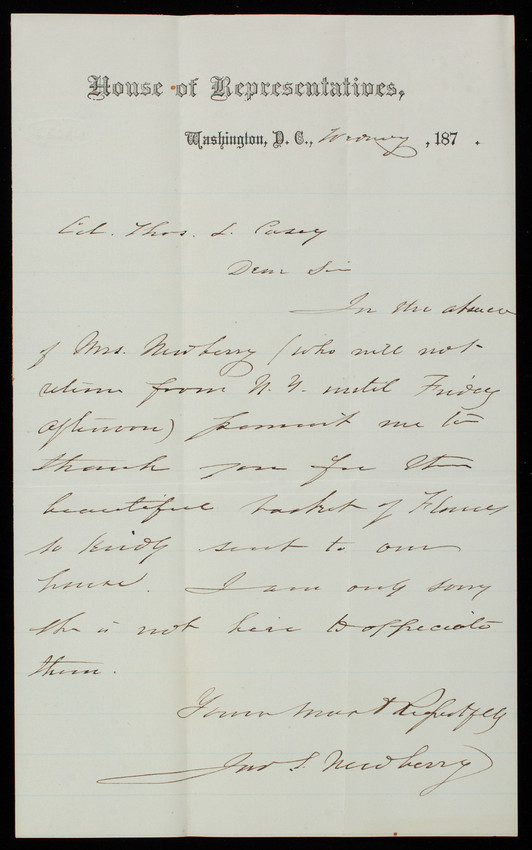 House of Representatives,
Washington, D. C., , 187 .
Col. Thos. L. Casey
Dear Sir
In the absence
of Mrs. Newberry (who will not
return from N. Y. until Friday
afternoon) permit me to
thank you for the
beautiful basket of Flowers
so kindly sent to our
house. I am only sorry
she is not here to appreciate
them.
Yours most Respectfully
Jno S. Newberry